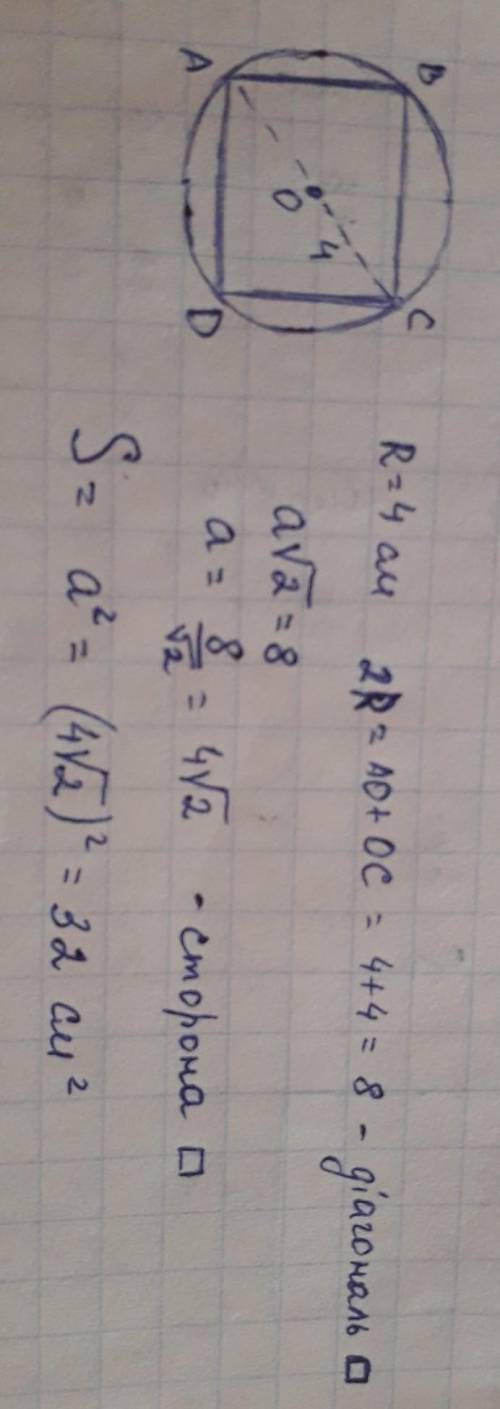 A B
O 4
D C
R = 4 см 2R = AO + OC = 4 + 4 = 8 - діагональ □
a√2 = 8
a = 8/√2 = 4√2 - сторона □
S = a² = (4√2)² = 32 см²